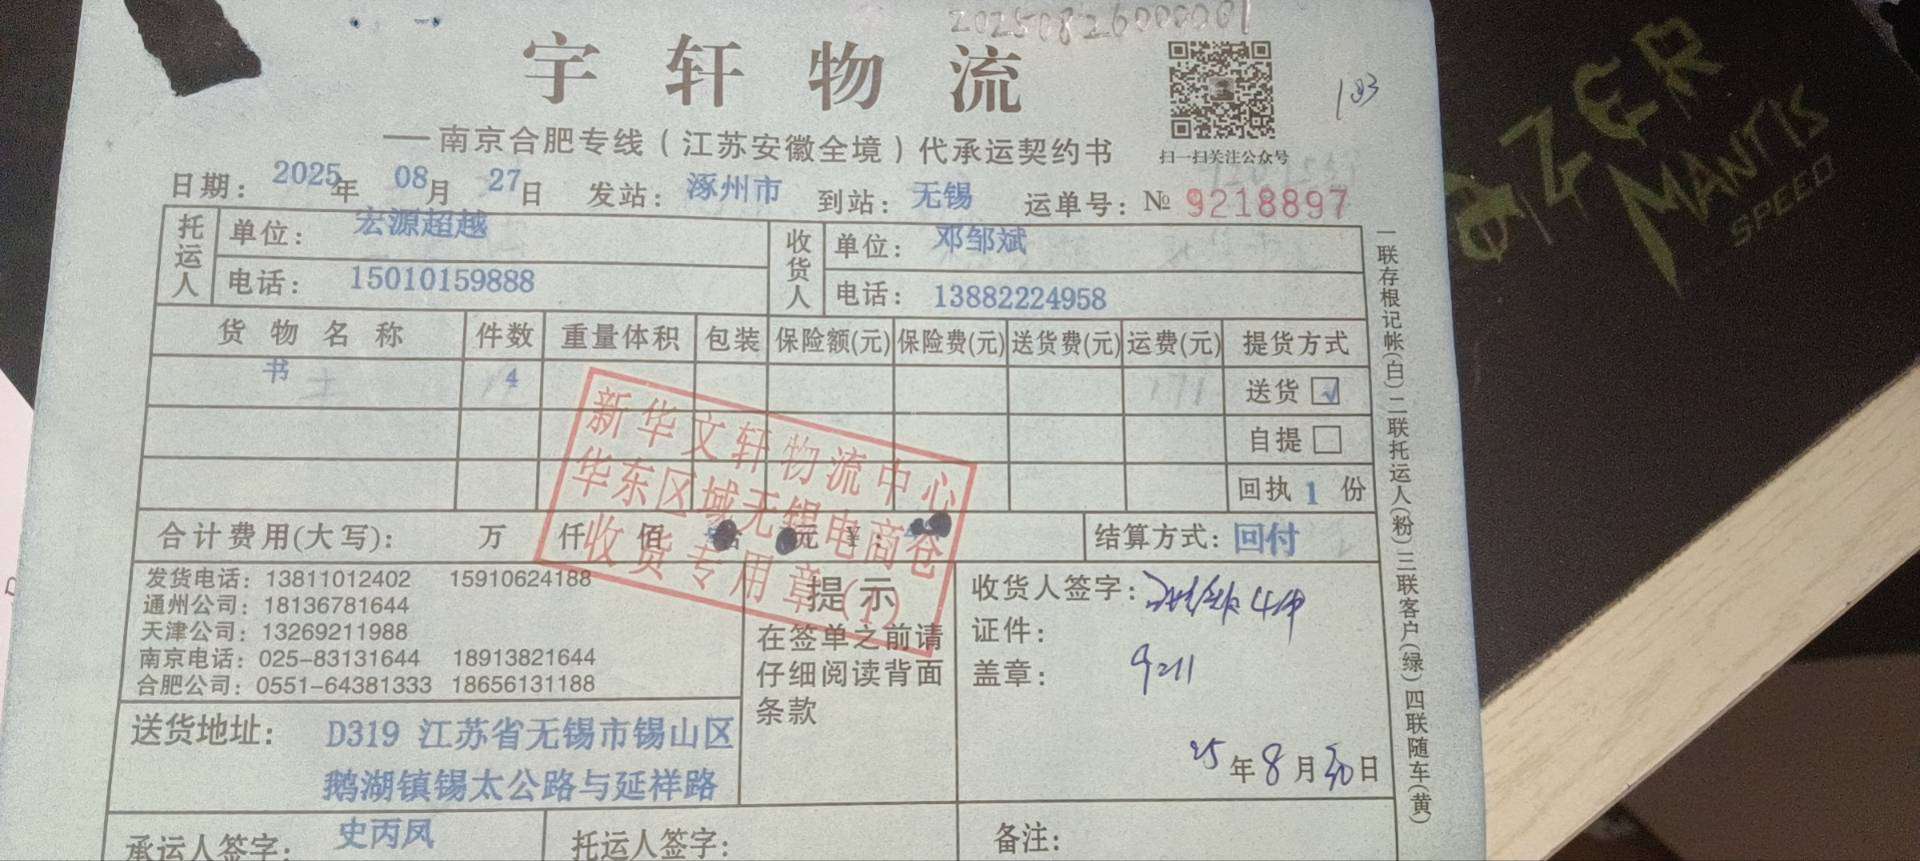 20250826000001
宇轩物流
183
——南京合肥专线(江苏安徽全境)代承运契约书
扫一扫关注公众号
日期: 2025年 08月 27日 发站: 涿州市 到站: 无锡 运单号: № 9218897
托运人 单位: 宏源超越 收货人 单位: 邓邹斌
电话: 15010159888 电话: 13882224958
货物名称 件数 重量体积 包装 保险额(元) 保险费(元) 送货费(元) 运费(元) 提货方式
书 4 送货 ☑
自提 □
回执 1 份
新华文轩物流中心
华东区域无锡电商仓
收货专用章(1)
合计费用(大写): 万 仟 佰 拾 元 ¥: 结算方式: 回付
发货电话: 13811012402 15910624188
通州公司: 18136781644
天津公司: 13269211988
南京电话: 025-83131644 18913821644
合肥公司: 0551-64381333 18656131188
提示
在签单之前请
仔细阅读背面
条款
收货人签字:
证件:
盖章: 9211
25年8月30日
送货地址: D319 江苏省无锡市锡山区
鹅湖镇锡太公路与延祥路
承运人签字: 史丙凤 托运人签字: 备注:
一联存根记帐(白) 二联托运人(粉) 三联客户(绿) 四联随车(黄)
MANTIS
SPEED